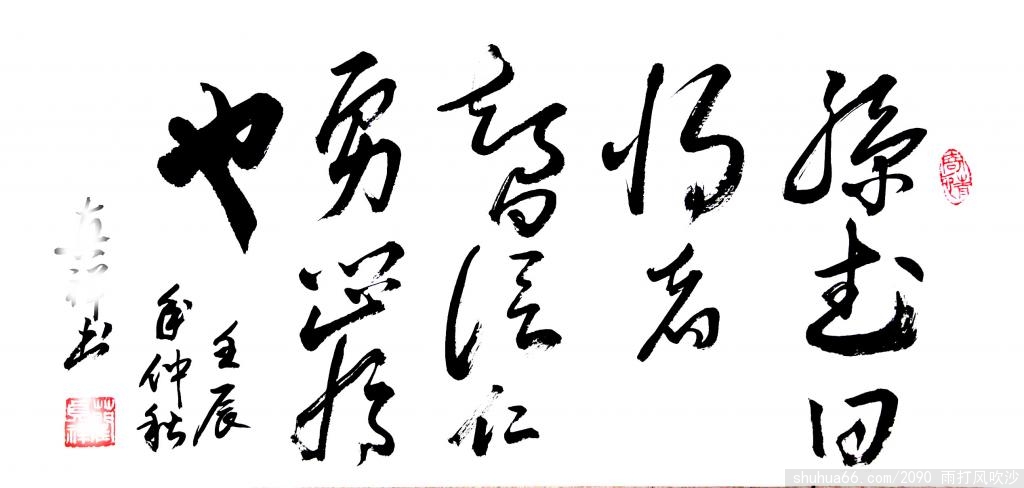 孫武曰
将者
智信仁
勇嚴
也
壬辰
年仲秋
书
shuhua66.com/2090 雨打风吹沙